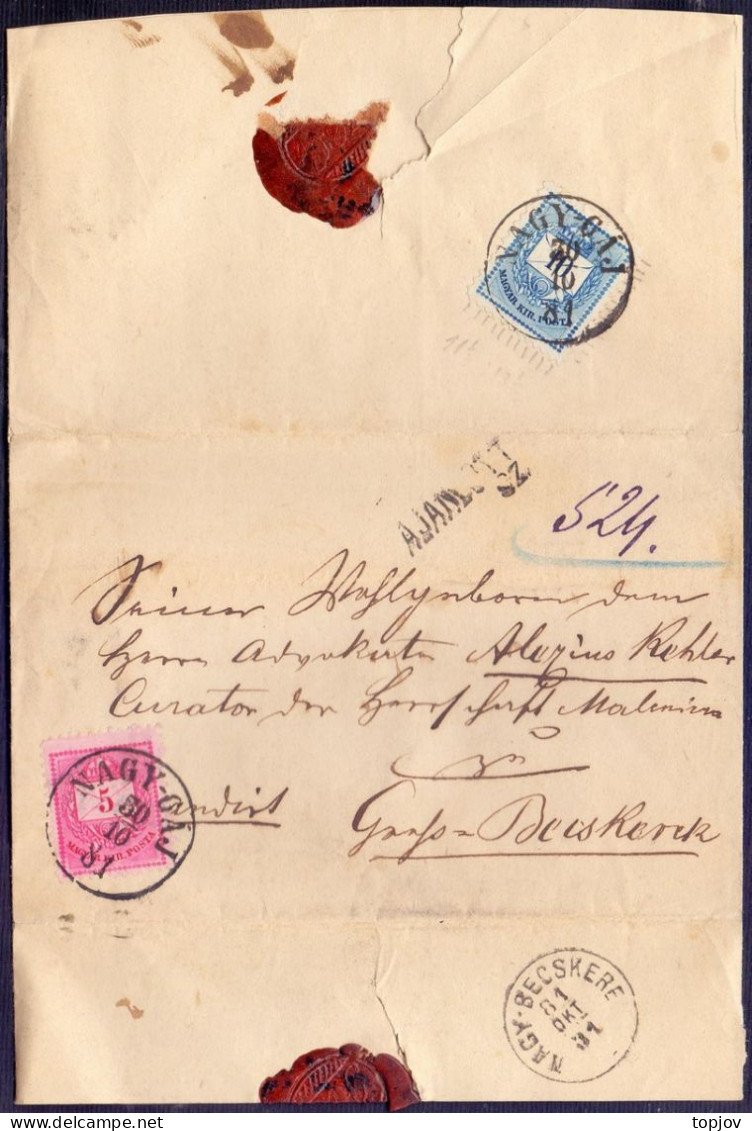 NAGY-GÁJ
30
10
81
10
MAGYAR KIR. POSTA
AJANLOTT
SZ.
524.
Seiner Wohlgeboren dem
Herrn Advokaten Alexius Kehler
Curator der Herrschaft
zu
Gross-Becskerek
NAGY-GÁJ
30
10
81
5
MAGYAR KIR. POSTA
NAGY-BECSKERE
81
OKT
31
topjov